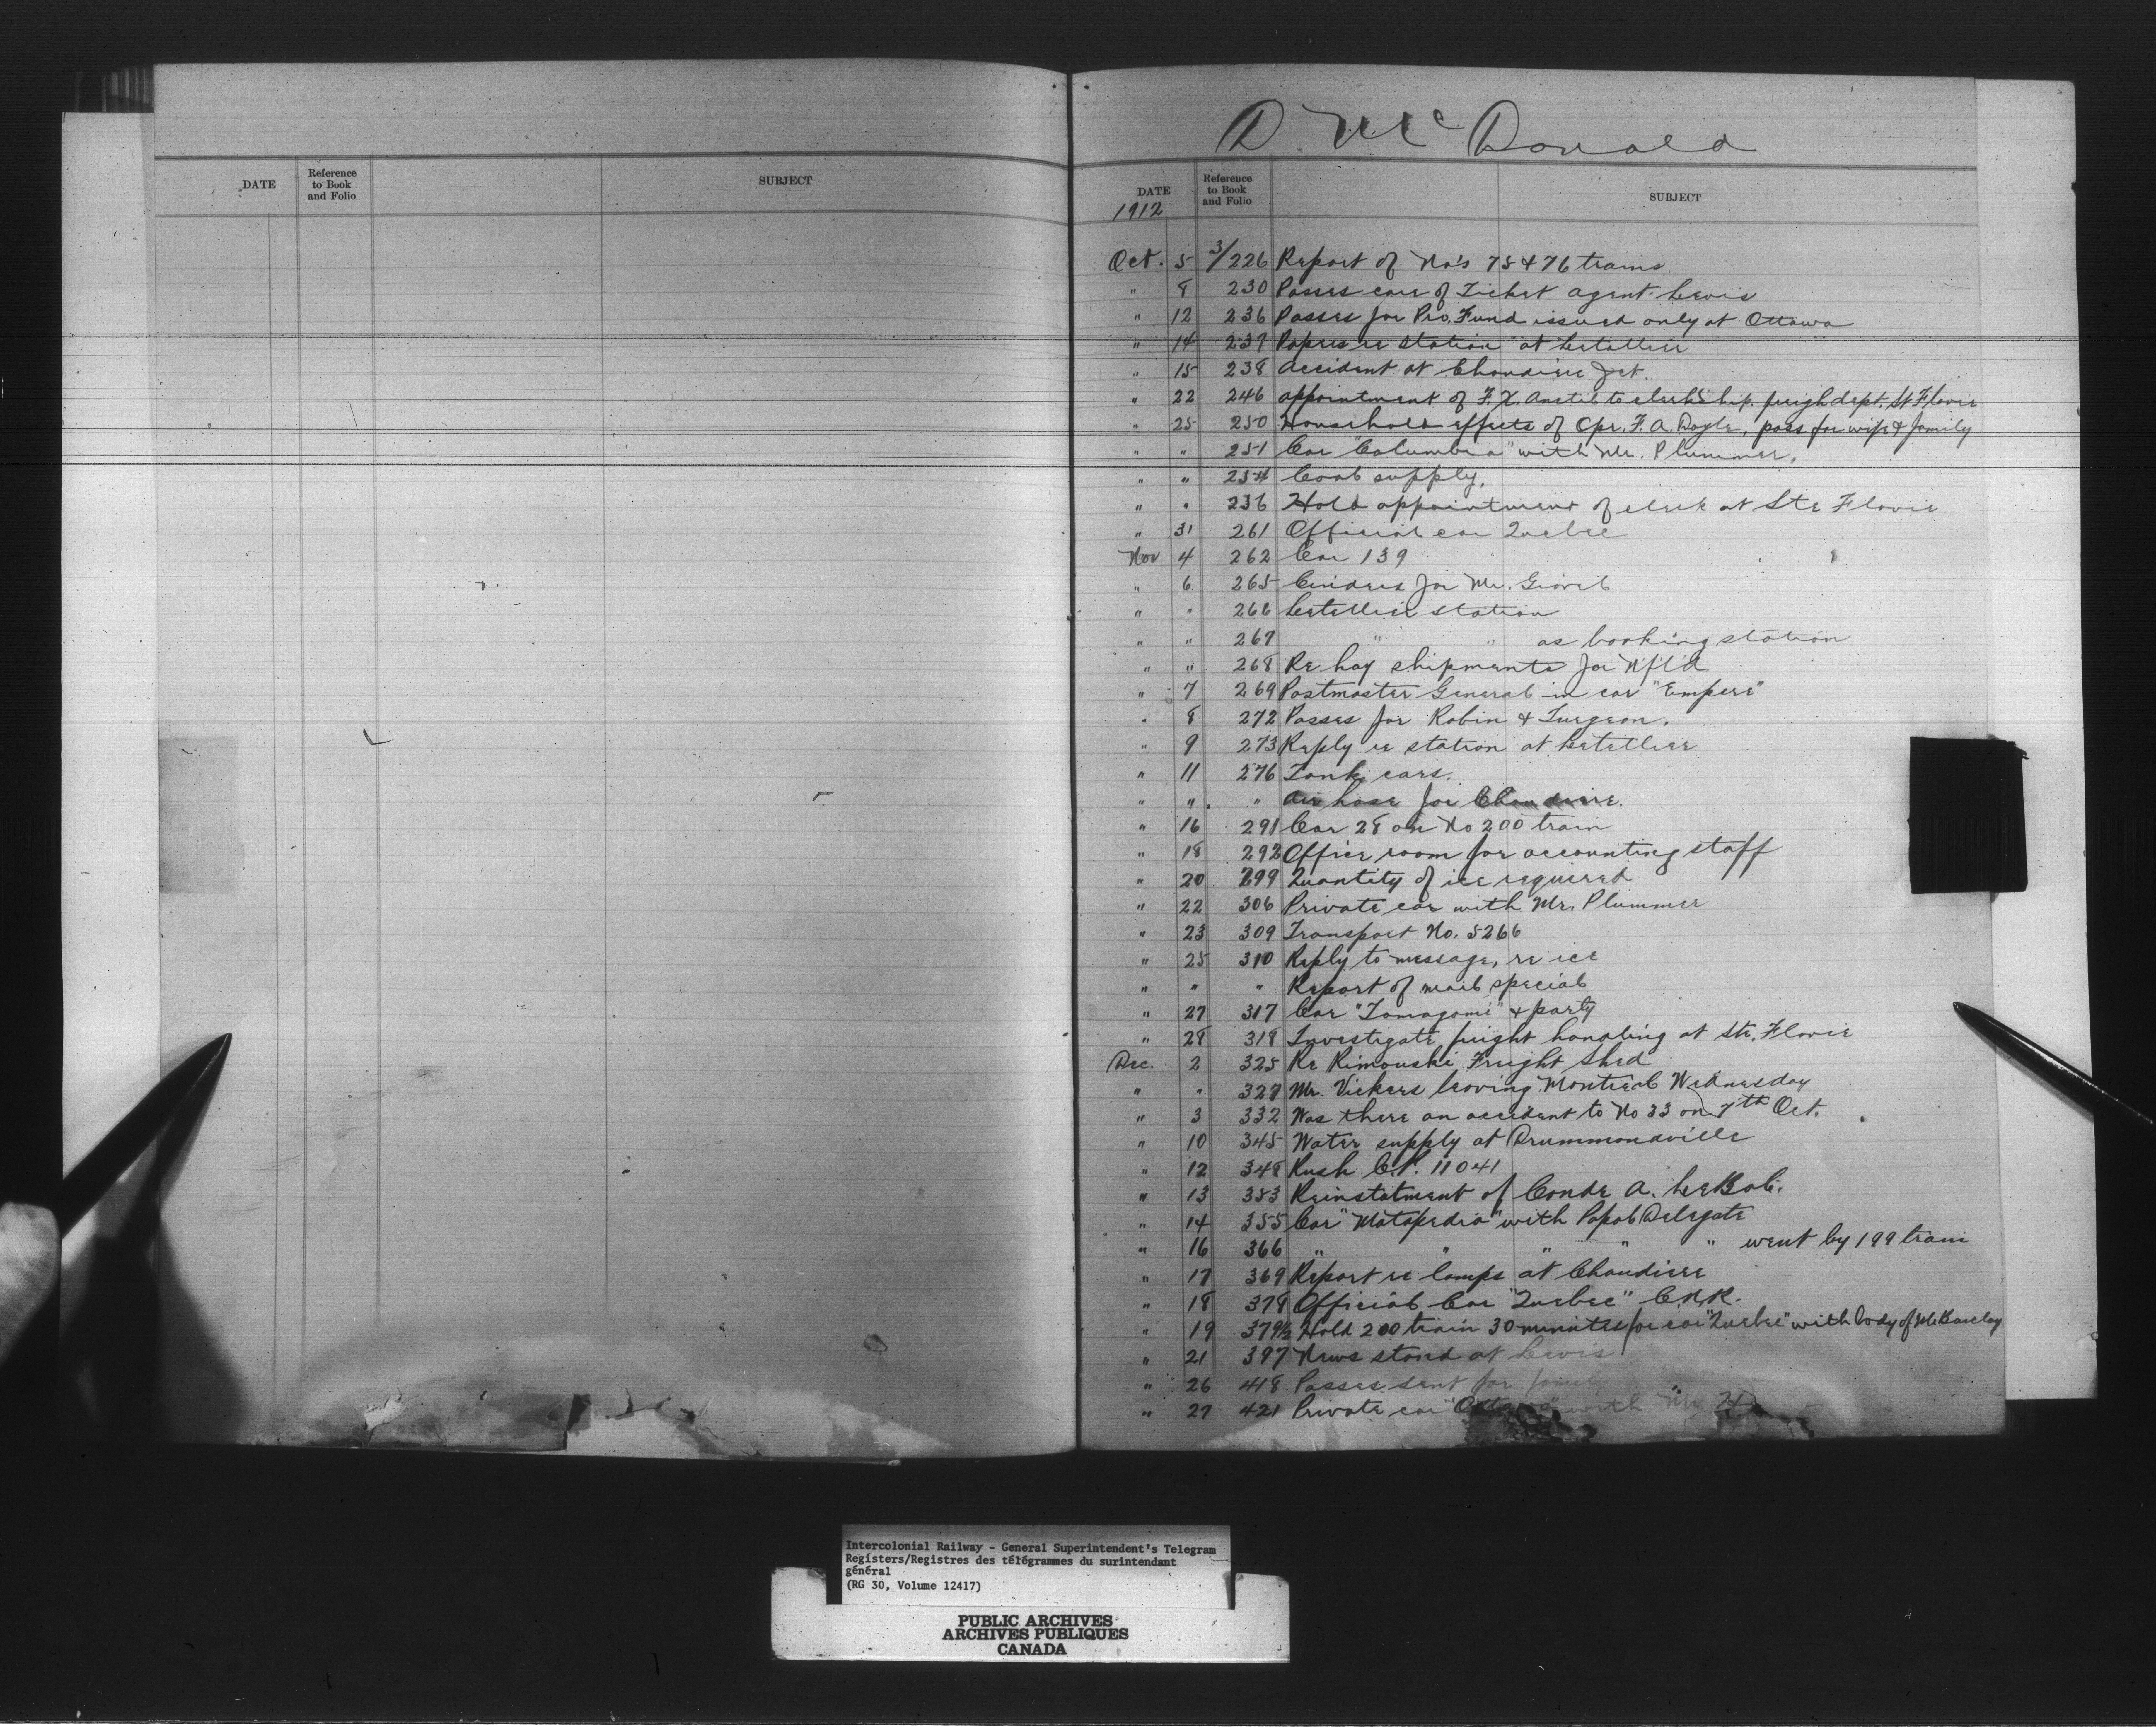 D. McDonald
DATE
Reference
to Book
and Folio
SUBJECT
DATE
1912
Reference
to Book
and Folio
SUBJECT
Oct. 5 3/226 Report of No's 75 & 76 trains.
" 8 230 Passes care of Ticket agent Levis
" 12 236 Passes for Pro. Fund issued only at Ottawa
" 14 237 Papers re station at Letellier
" 15 238 Accident at Chaudiere Jct.
" 22 246 appointment of F. X. to clerkship. freigh dept. St Flavie
" 25 250 Household effects of Opr. F. A. Doyle, pass for wife & family
" " 251 Car "Columbia" with Mr. Plummer.
" " 254 Coal supply.
" " 256 Hold appointment of clerk at Ste Flavie
" 31 261 Official car Quebec
Nov 4 262 Car 139
" 6 265 Cinders for Mr.
" " 266 Letellier station
" " 267 " " as booking station
" " 268 Re hay shipments for Nf'l'd
" 7 269 Postmaster General in car "Empire"
" 8 272 Passes for Robin & Turgeon.
" 9 273 Reply re station at Letellier
" 11 276 Tank cars.
" " " Air hose for Chaudiere.
" 16 291 Car 28 on No 200 train
" 18 292 Office room for accounting staff
" 20 299 Quantity of ice required
" 22 306 Private car with Mr. Plummer
" 23 309 Transport No. 5266
" 25 310 Reply to message, re ice
" " " Report of mail special
" 27 317 Car "Tomagomi" & party
" 28 318 Investigate freight handling at Ste. Flavie
Dec. 2 325 Re Rimouski Freight Shed
" " 327 Mr. Vickers leaving Montreal Wednesday
" 3 332 Was there an accident to No 33 on 7th Oct.
" 10 345 Water supply at Drummondville
" 12 348 Rush C.P. 11041
" 13 353 Reinstatment of Condr A. LeBel.
" 14 355 Car "Matapedia" with Papal Delegate
" 16 366 " " " " " went by 199 train
" 17 369 Report re lamps at Chaudiere
" 18 378 Official Car "Quebec" C.N.R.
" 19 379½ Hold 200 train 30 minutes for car "Quebec" with body of Mr Barclay
" 21 397 News stand at Levis
" 26 418 Passes sent for family
" 27 421 Private car "Ottawa" with Mr.
Intercolonial Railway - General Superintendent's Telegram
Registers/Registres des télégrammes du surintendant
général
(RG 30, Volume 12417)
PUBLIC ARCHIVES
ARCHIVES PUBLIQUES
CANADA